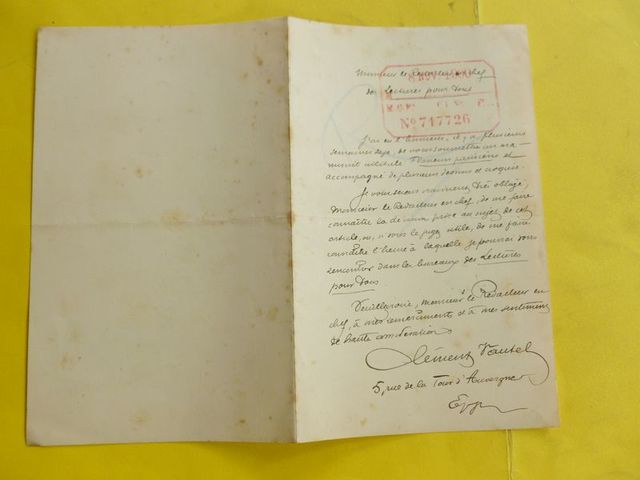 Monsieur le Rédacteur en chef
des Lectures pour Tous
No 717726
J'ai eu l'honneur, il y a plusieurs
semaines déjà, de vous soumettre un ma-
nuscrit intitulé parisiens et
accompagné de plusieurs dessins et croquis.
Je vous serais vraiment très obligé,
Monsieur le Rédacteur en chef, de me faire
connaître la au sujet de cet
article, ou, si vous le jugez utile, de me faire
connaître l'heure à laquelle je pourrai vous
rencontrer dans les bureaux des Lectures
pour Tous
Veuillez Monsieur le Rédacteur en
chef, à mes remerciements et à mes sentiments
de haute considération
Clément Vautel
5, rue de la Tour d'Auvergne